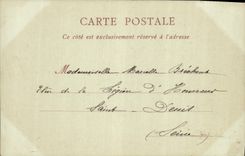 CARTE POSTALE
Ce côté est exclusivement réservé à l'adresse
Mademoiselle Marcelle
de la Légion d'Honneur
Saint - Denis
(Seine)